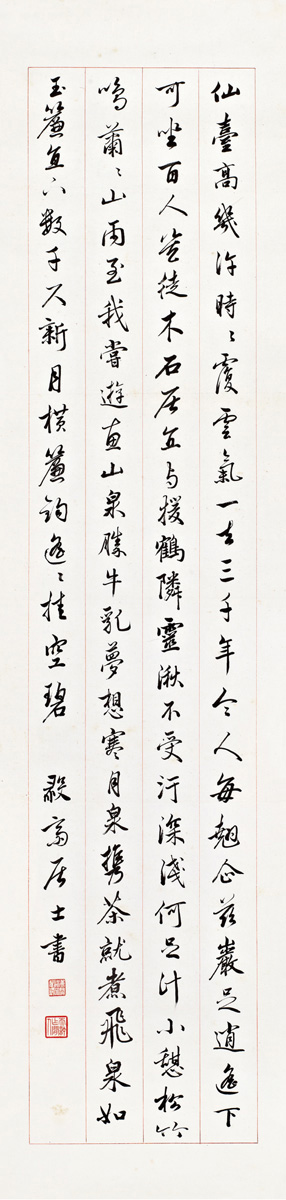 仙臺高幾許時〻覆雲氣一去三千年令人每翹企茲巖足逍遙下
可坐百人豈徒木石居宜与猨鶴隣靈湫不受汙深淺何足計小憩松竹
鳴蕭〻山雨至我嘗遊惠山泉勝牛乳夢想寒月泉攜茶就煮飛泉如
玉簾直下數千尺新月橫簾鉤遙〻挂空碧 毅齋居士書